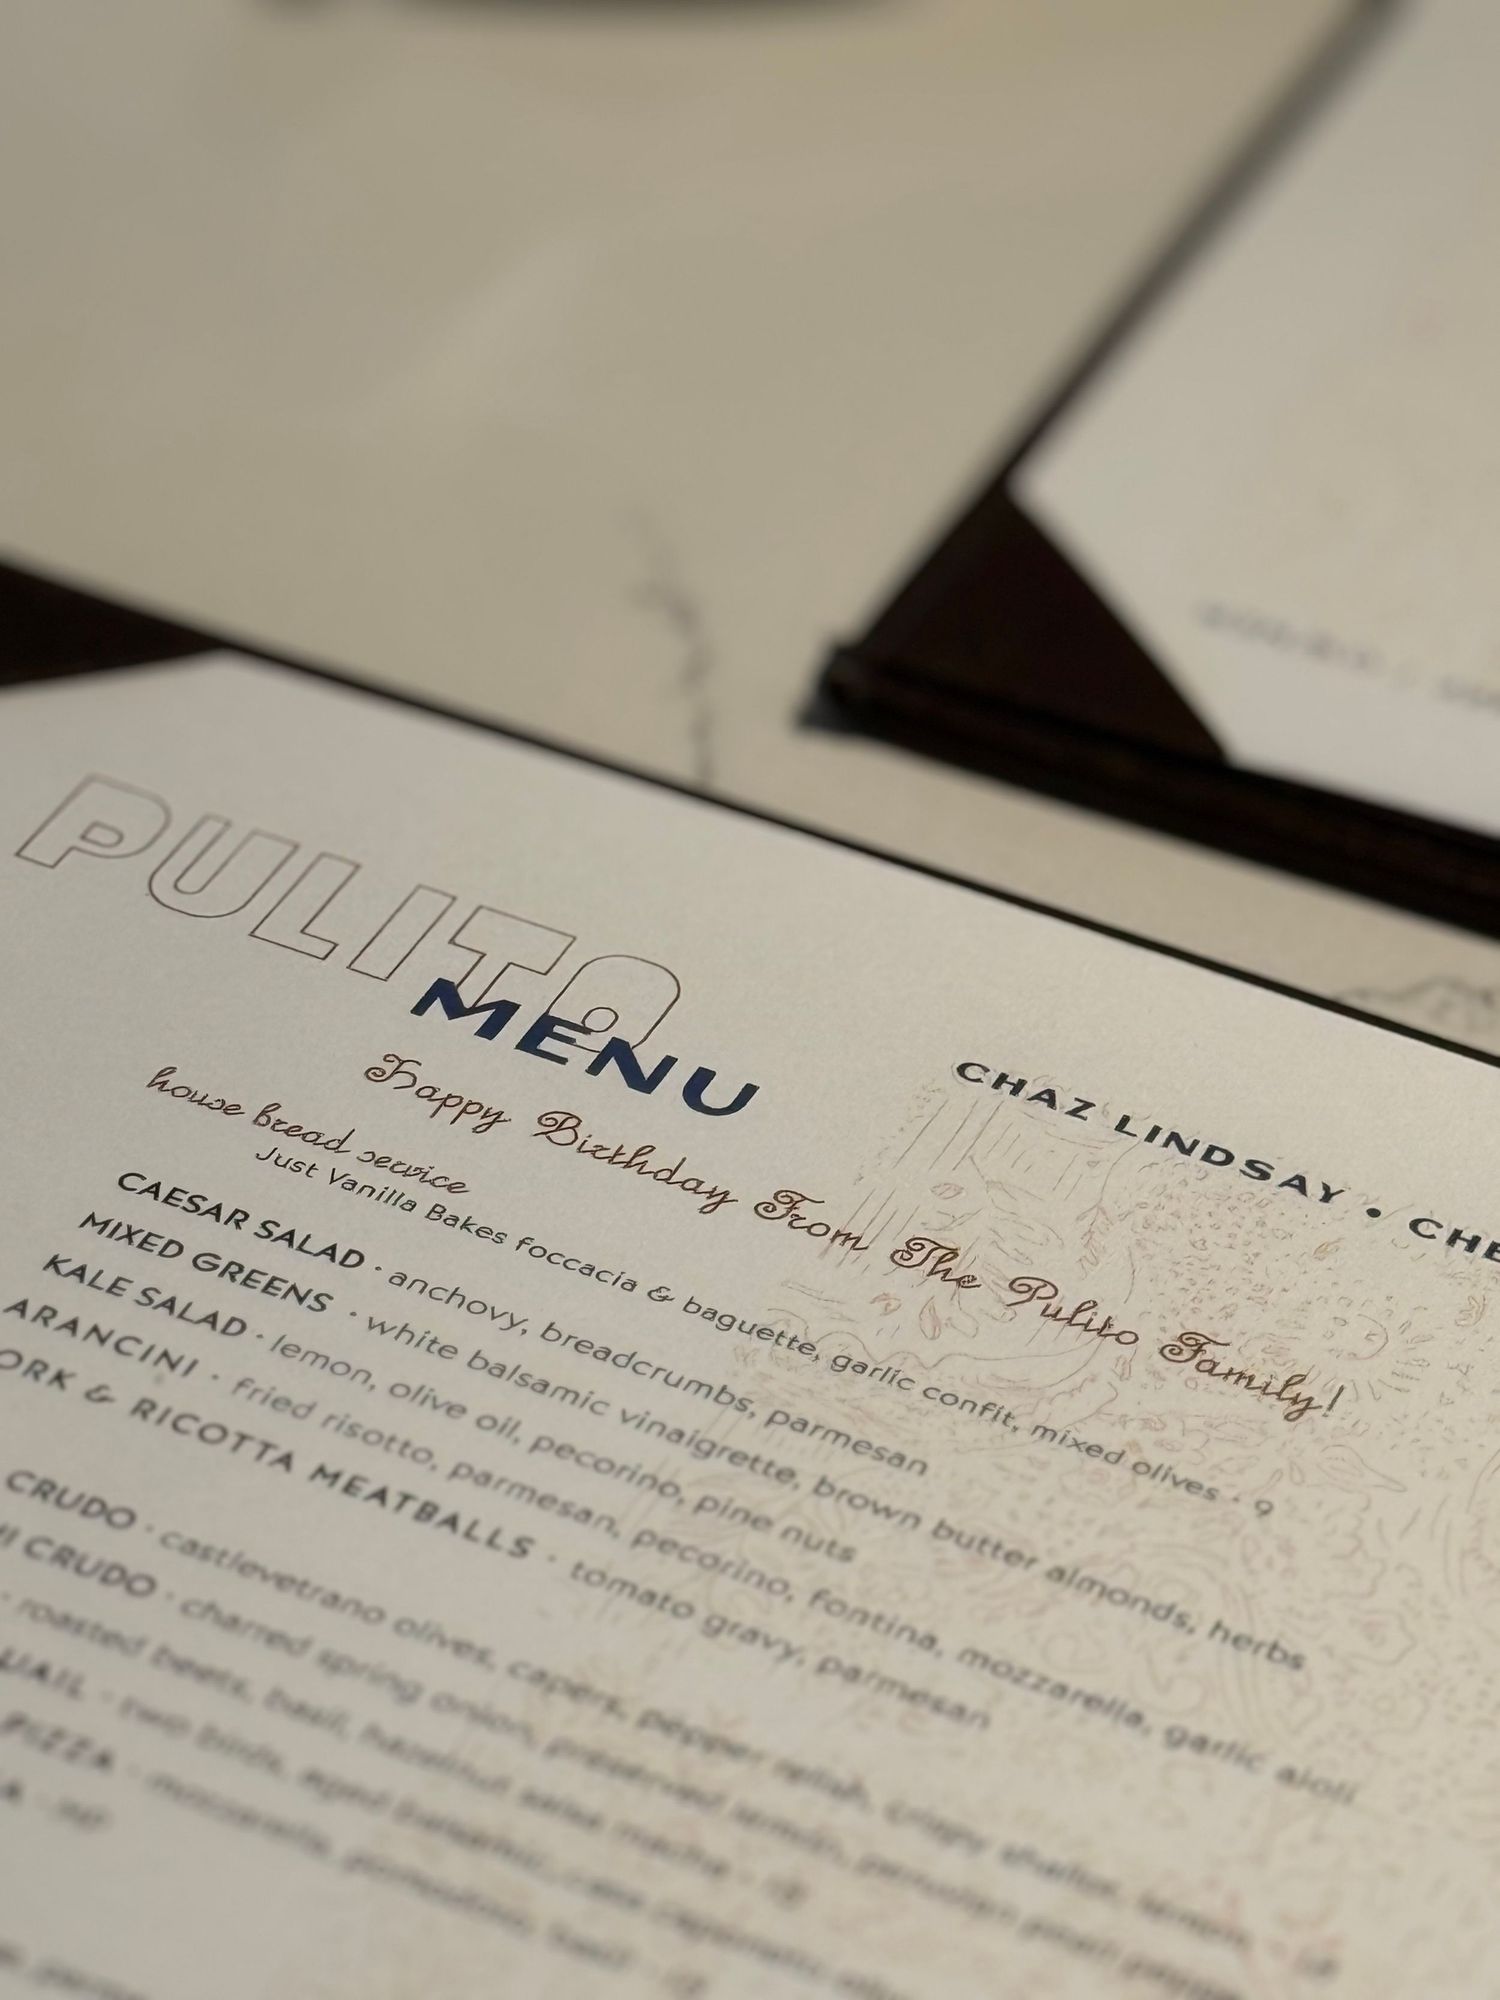 PULITO
MENU
CHAZ LINDSAY •
Happy Birthday From The Pulito Family!
house bread service
Just Vanilla Bakes foccacia & baguette, garlic confit, mixed olives · 9
CAESAR SALAD · anchovy, breadcrumbs, parmesan
MIXED GREENS · white balsamic vinaigrette, brown butter almonds, herbs
KALE SALAD · lemon, olive oil, pecorino, pine nuts
ARANCINI · fried risotto, parmesan, pecorino, fontina, mozzarella, garlic aioli
& RICOTTA MEATBALLS · tomato gravy, parmesan
CRUDO · castlevetrano olives, capers, pepper relish, crispy shallot, lemon
CRUDO · charred spring onion, preserved lemon,
· roasted beets, basil, hazelnut salsa macha
· two birds, aged balsamic,
PIZZA · mozzarella, pomodoro, basil